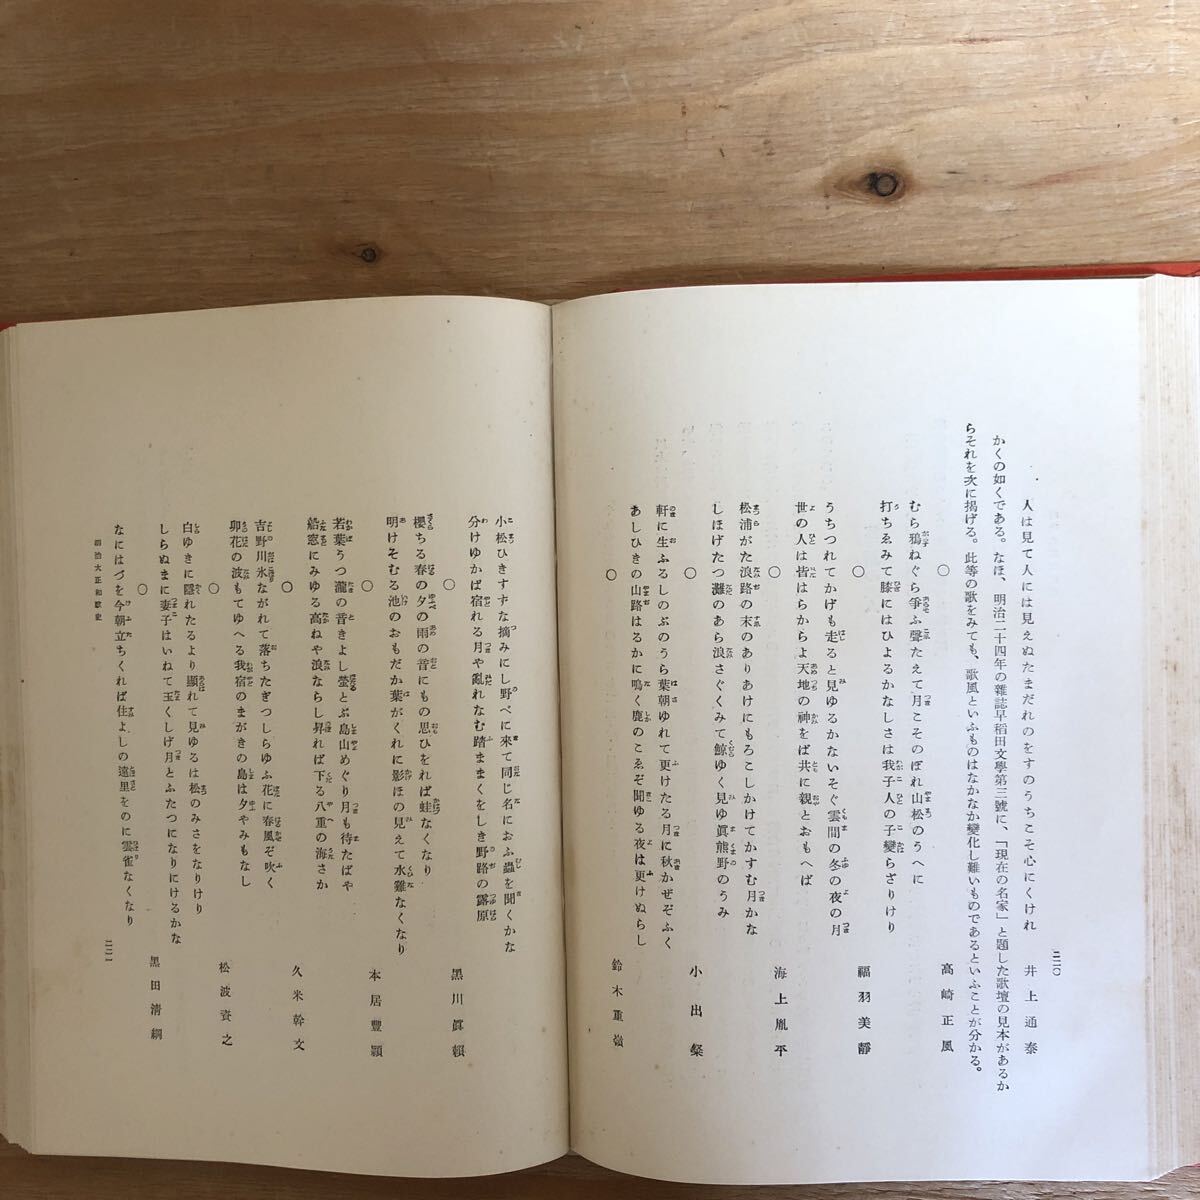 人は見て人には見えぬたまだれのをすのうちこそ心にくけれ　井上通泰
かくの如くである。なほ、明治二十四年の雜誌早稻田文學第三號に、「現在の名家」と題した歌壇の見本があるか
らそれを次に揭げる。此等の歌をみても、歌風といふものはなかなか變化し難いものであるといふことが分かる。
○　高崎正風
むら鴉ねぐら爭ふ聲たえて月こそのぼれ山松のうへに
打ちゑみて膝にはひよるかなしさは我子人の子變らざりけり
○　福羽美靜
うちつれてかげも走ると見ゆるかないそぐ雲間の冬の夜の月
世の人は皆はらからよ天地の神をば共に親とおもへば
○　海上胤平
松浦がた浪路の末のありあけにもろこしかけてかすむ月かな
しほげたつ灘のあら浪さぐくみて鯨ゆく見ゆ眞熊野のうみ
○　小出粲
軒に生ふるしのぶのうら葉朝ゆれて更けたる月に秋かぜぞふく
あしひきの山路はるかに鳴く鹿のこゑぞ聞ゆる夜は更けぬらし
○　鈴木重嶺
二二〇
小松ひきすずな摘みにし野べに來て同じ名におふ蟲を聞くかな
分けゆかば宿れる月や亂れなむ踏ままくをしき野路の露原
○　黑川眞賴
櫻ちる春の夕の雨の音にもの思ひをれば蛙なくなり
明けそむる池のおもだか葉がくれに影ほの見えて水雞なくなり
○　本居豐穎
若葉うつ瀧の音きよし螢とぶ島山めぐり月も待たばや
船窓にみゆる高ねや浪ならし昇れば下る八重の海さか
○　久米幹文
吉野川氷ながれて落ちたぎつしらゆふ花に春風ぞ吹く
卯花の波もてゆへる我宿のまがきの島は夕やみもなし
○　松波資之
白ゆきに隱れたるより顯れて見ゆるは松のみさをなりけり
しらぬまに妻子はいねて玉くしげ月とふたつになりにけるかな
○　黑田淸綱
なにはづを今朝立ちくれば住よしの遠里をのに雲雀なくなり
明治大正和歌史
二二一